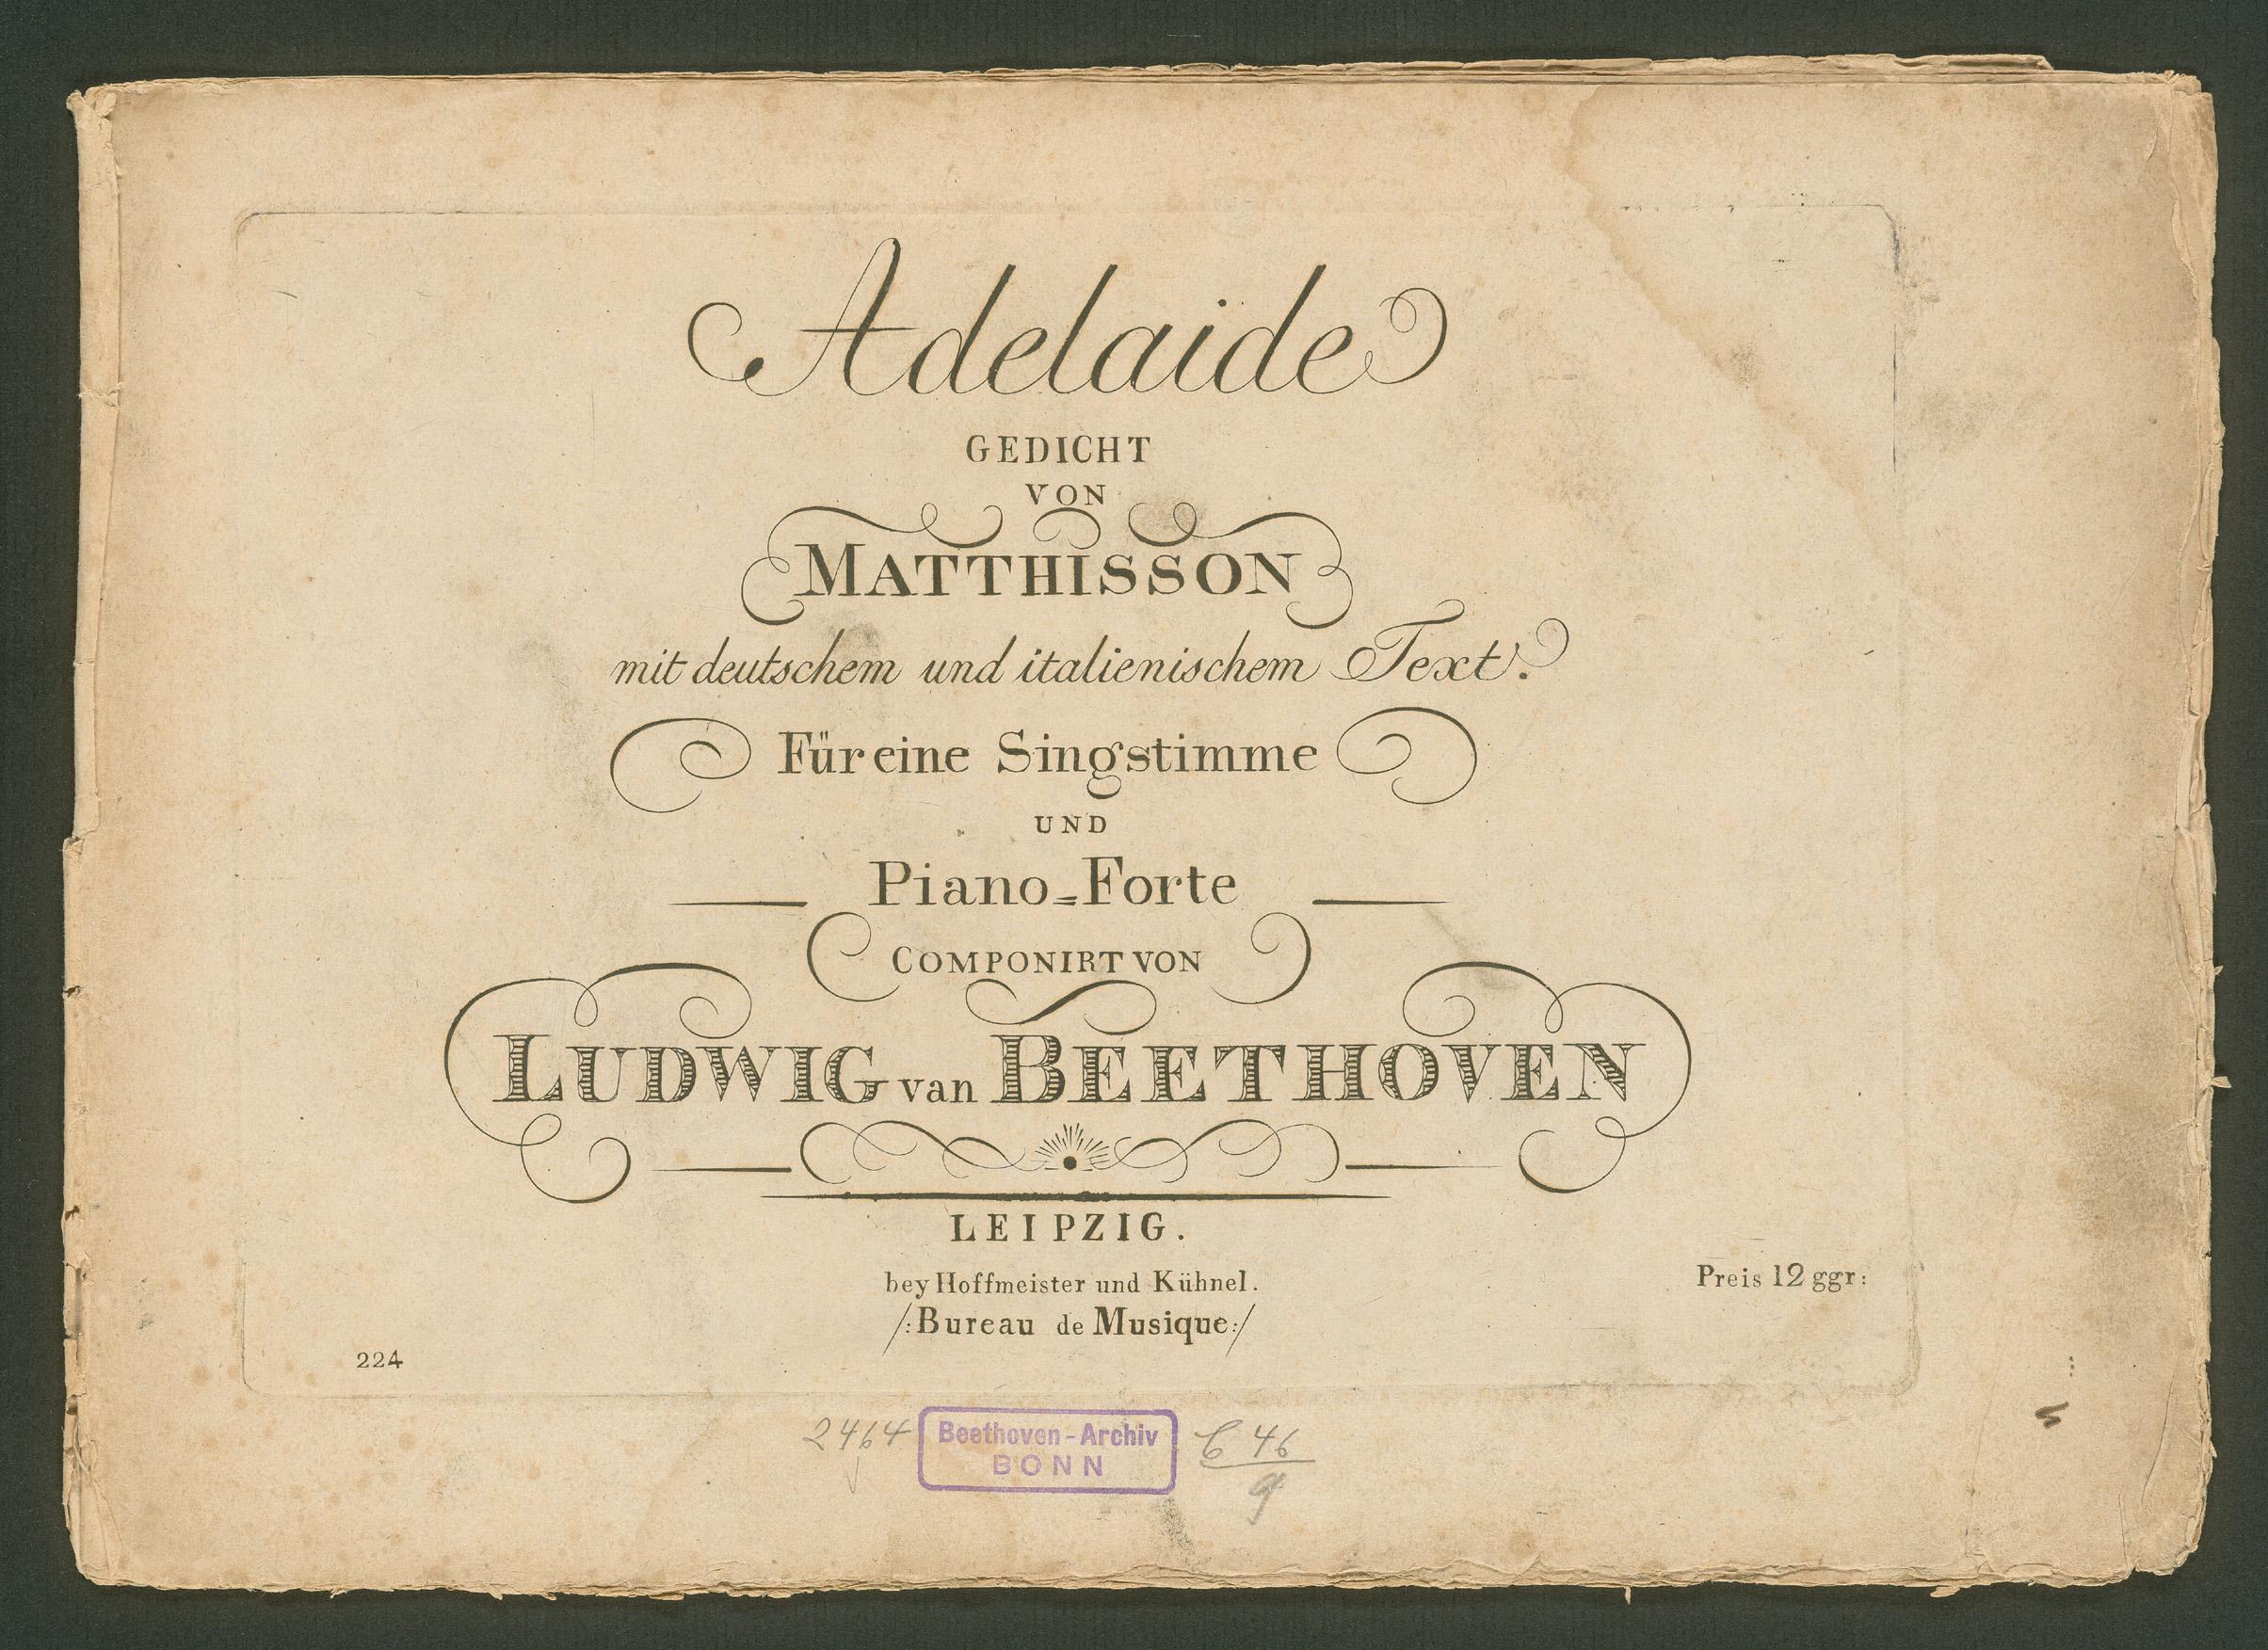 Adelaide
GEDICHT
VON
MATTHISSON
mit deutschem und italienischem Text.
Für eine Singstimme
UND
Piano=Forte
COMPONIRT VON
LUDWIG van BEETHOVEN
LEIPZIG.
bey Hoffmeister und Kühnel.
/:Bureau de Musique:/
Preis 12 ggr:
224
2464
Beethoven-Archiv
BONN
C 46
9